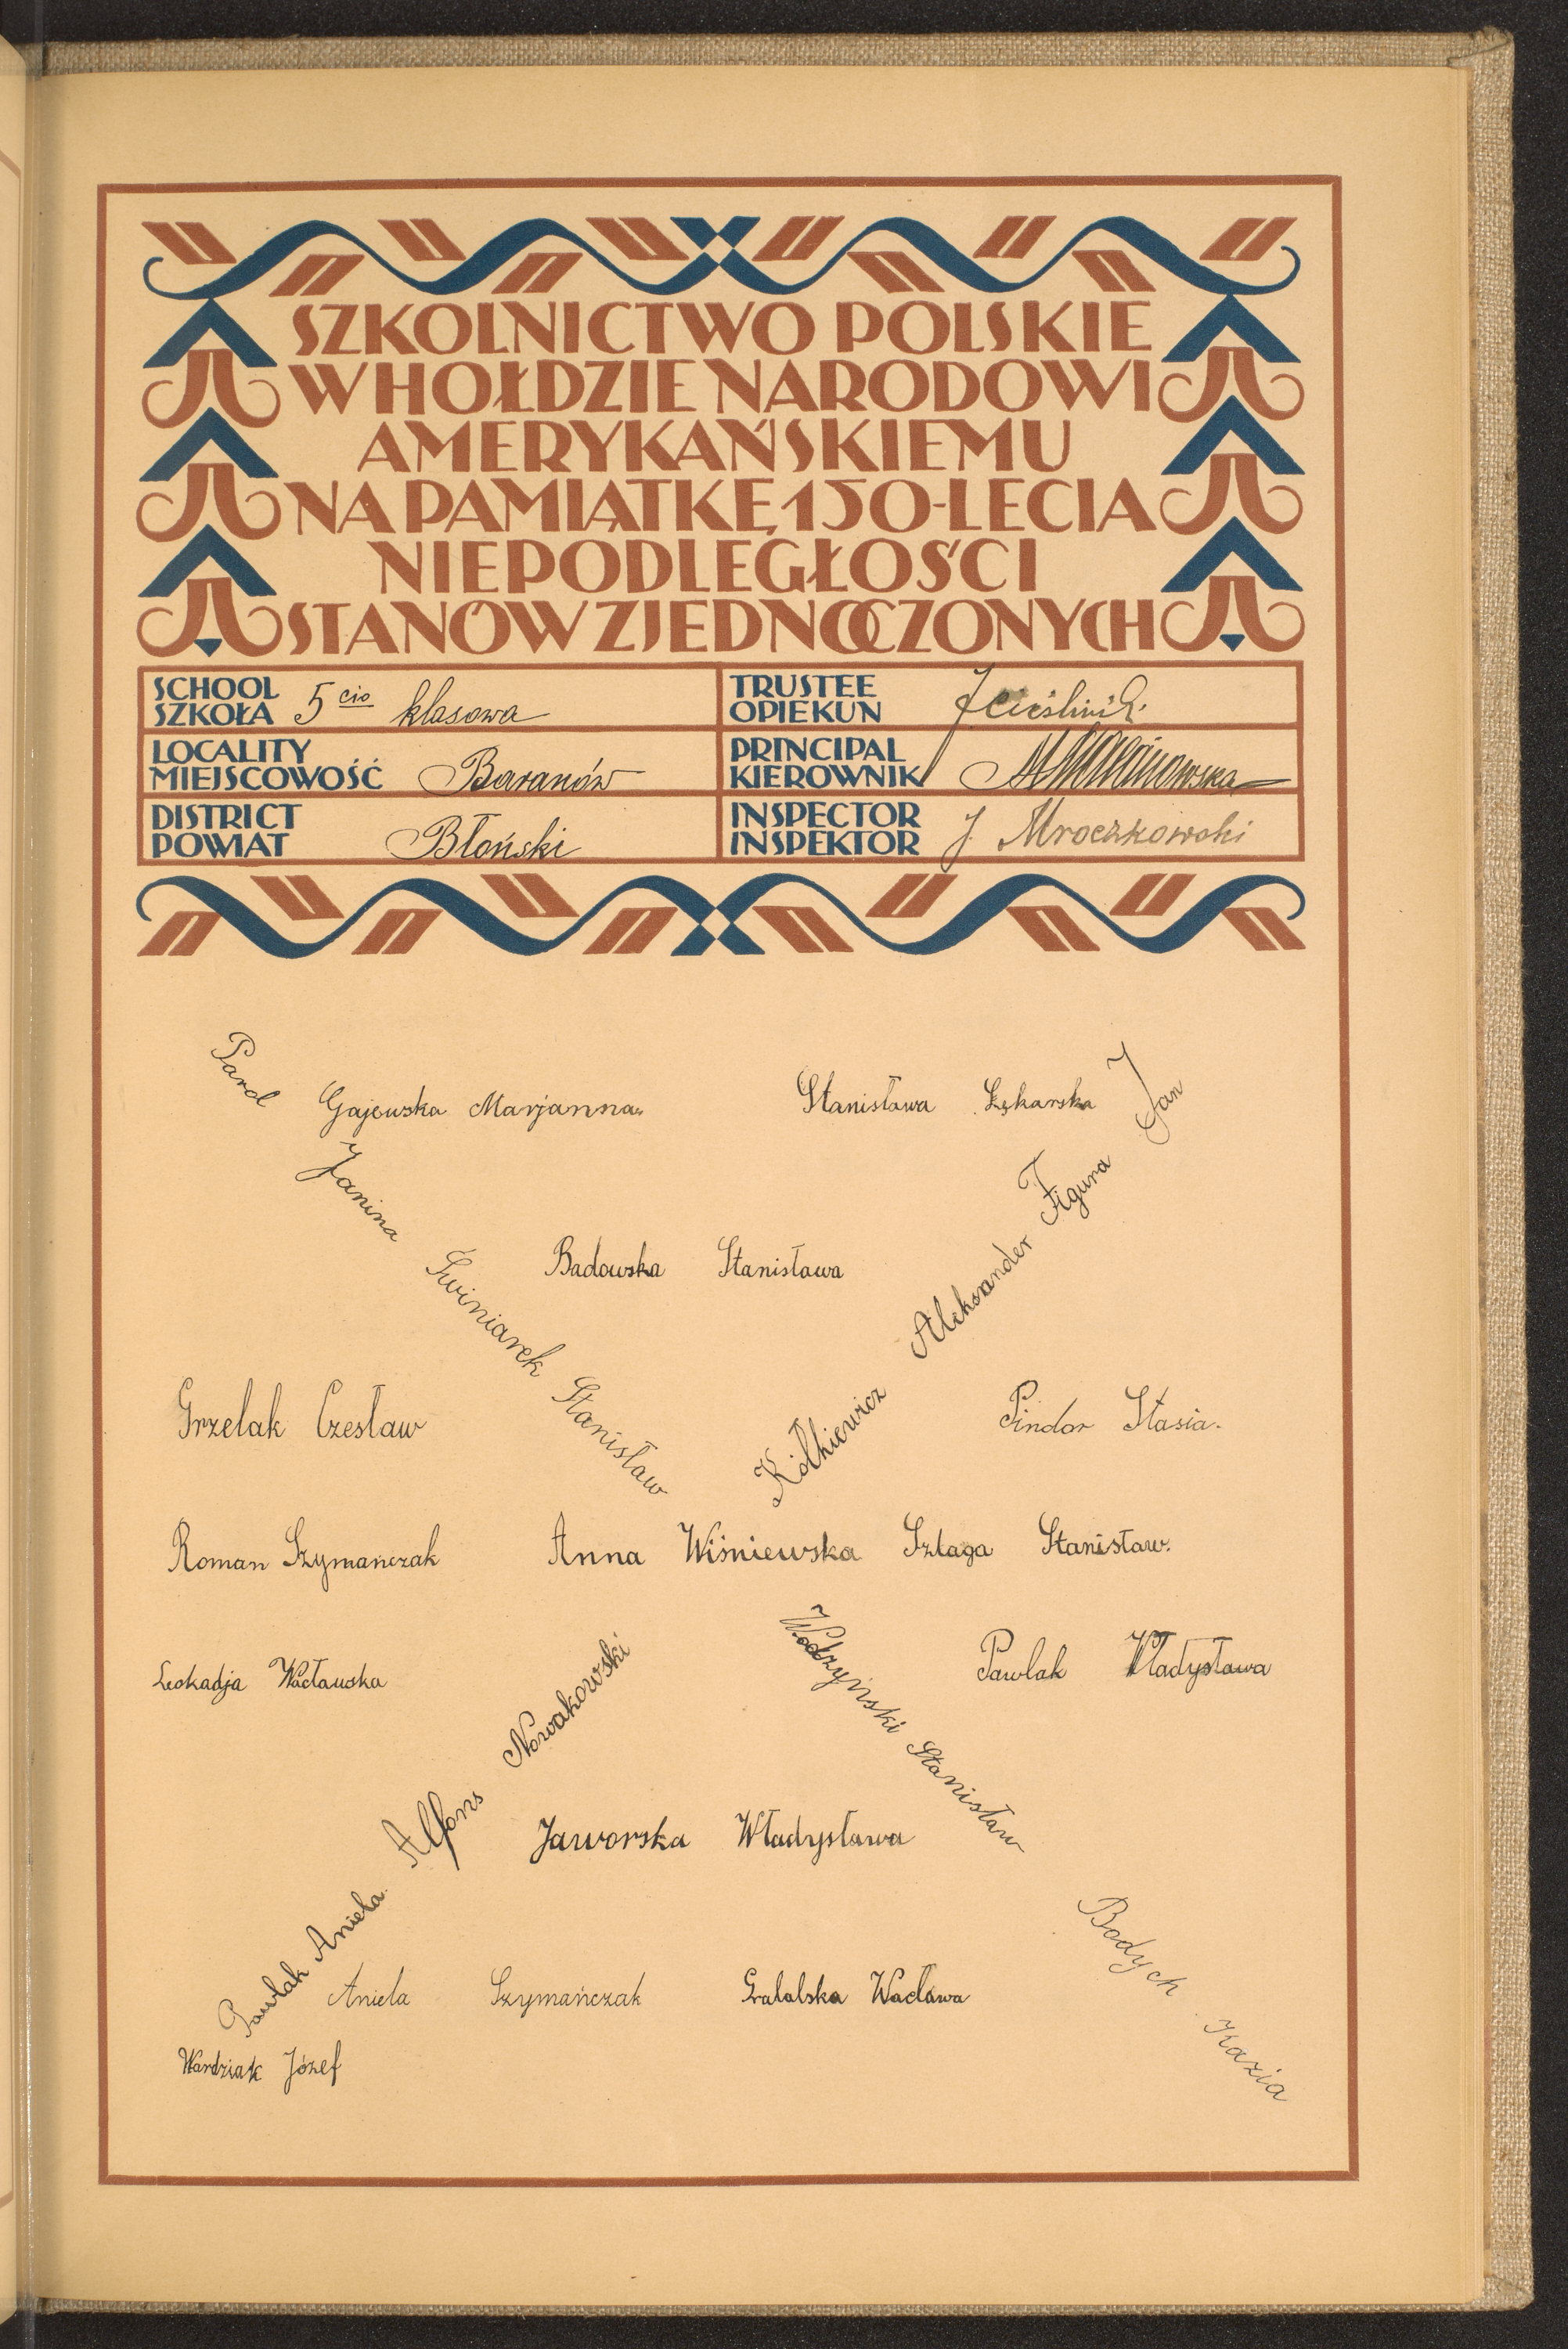 SZKOLNICTWO POLSKIE
W HOŁDZIE NARODOWI
AMERYKAŃSKIEMU
NA PAMIĄTKĘ 150-LECIA
NIEPODLEGŁOŚCI
STANÓW ZJEDNOCZONYCH
SCHOOL
SZKOŁA 5 cio klasowa
TRUSTEE
OPIEKUN
LOCALITY
MIEJSCOWOŚĆ Baranów
PRINCIPAL
KIEROWNIK
DISTRICT
POWIAT Błoński
INSPECTOR
INSPEKTOR J. Mroczkowski
Pard Janina
Gajewska Marjanna
Stanisława Łękarska
Figura Jan
Świniarek Stanisław
Badowska Stanisława
Kółkiewicz Aleksander
Grzelak Czesław
Pindor Stasia.
Roman Szymańczak
Anna Wiśniewska
Szlaga Stanisław.
Leokadja Wacławska
Alfons Nowakowski
Wodzyński Stanisław
Pawlak Władysława
Jaworska Władysława
Pawlak Aniela.
Aniela Szymańczak
Gralalska Wacława
Bodych Kazia
Wardziak Józef